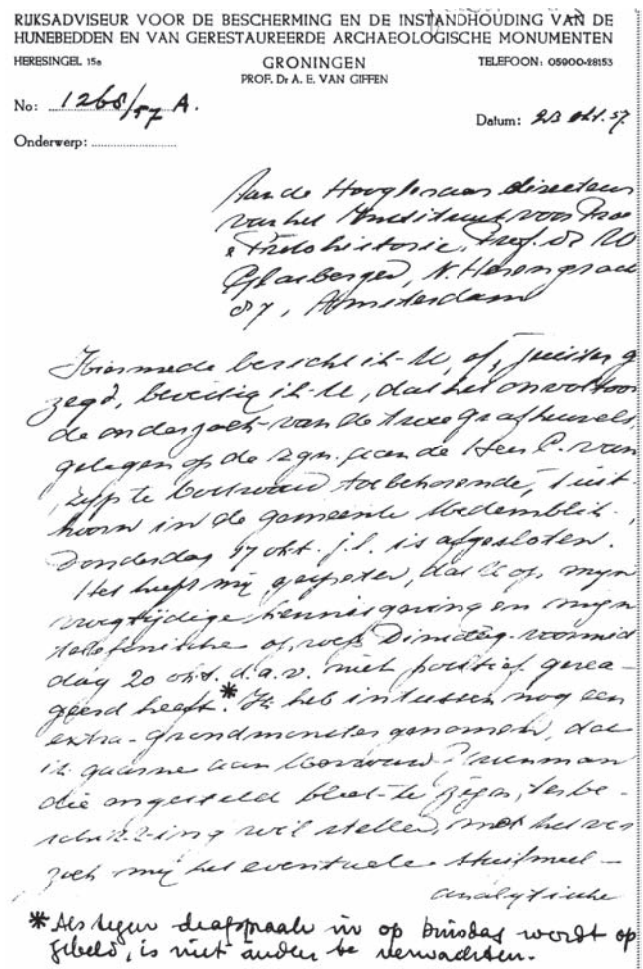 RIJKSADVISEUR VOOR DE BESCHERMING EN DE INSTANDHOUDING VAN DE
HUNEBEDDEN EN VAN GERESTAUREERDE ARCHAEOLOGISCHE MONUMENTEN
HERESINGEL 15a GRONINGEN TELEFOON: 05900-28153
PROF. Dr A. E. VAN GIFFEN
No: 1268/57 A.
Datum: 23 okt. 57.
Onderwerp:
Aan de Hoogleraar directeur
van het Instituut voor Prae
& Protohistorie, Prof. dr W
Glasbergen, N. Herengracht
87, Amsterdam
Hiermede bericht ik U, of, juister ge
zegd, bevestig ik U, dat het onvoltooi
de onderzoek van de twee grafheuvels,
gelegen op de zgn. aan de Heer P. van
Zijp te toebehorende,
hoorn in de gemeente Medemblik,
Donderdag 17 okt. j.l. is afgesloten.
Het heeft mij gespeten, dat U op mijn
vroegtijdige kennisgeving en mijn
telefonische op Dinsdag-voormid
dag 20 okt. d.a.v. niet positief gerea-
geerd heeft.* Ik heb intussen nog een
extra-grondmonster genomen, dat
ik gaarne aan
die ongesteld bleek te zijn, ter be-
schikking wil stellen, met het ver
zoek mij het eventuele stuifmeel-
analytische
*Als tegen de afspraak in op dinsdag wordt op
gebeld, is niet anders te verwachten.